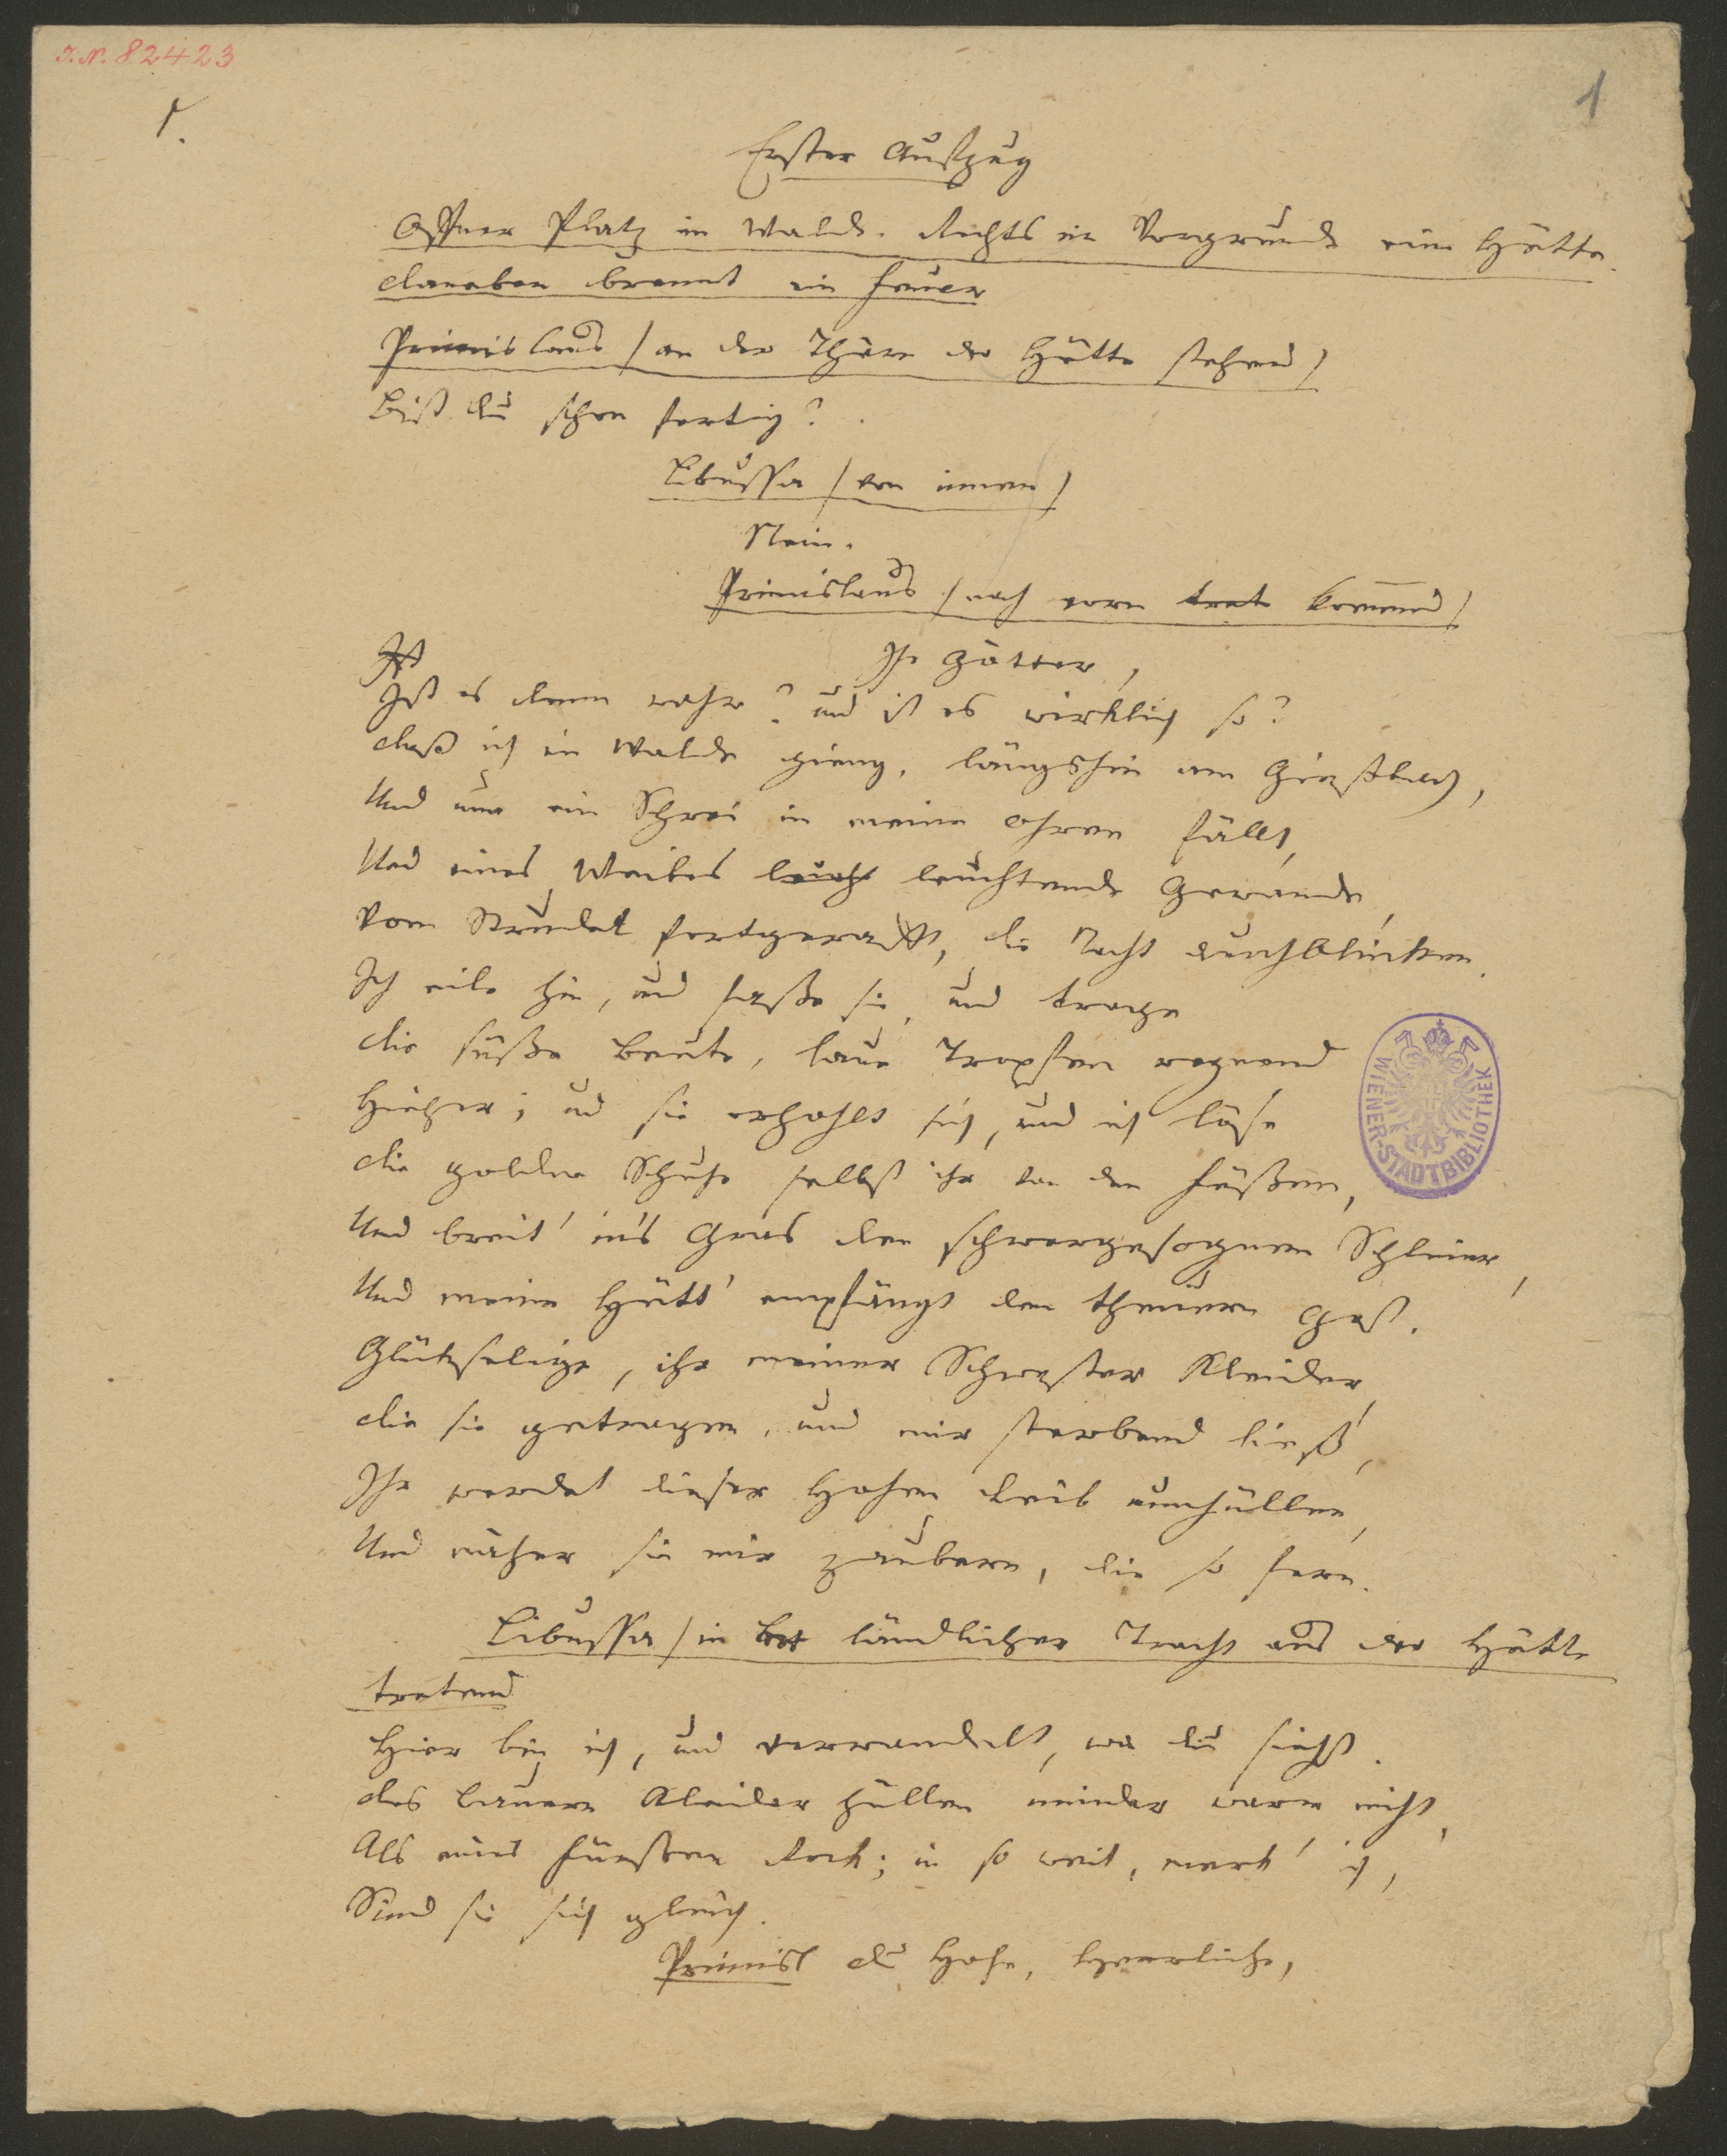 J.N. 82423
1.
1
Erster Aufzug
Offner Platz im Walde. Rechts im Vorgrunde eine Hütte.
daneben brennt ein Feuer
Primislaus /an der Thüre der Hütte stehend/
Bist du schon fertig?
Libussa /von innen/
Nein.
Primislaus /nach vorn kommend/
Ihr Götter,
Ist es denn wahr? und ist es wirklich so?
daß ich im Walde gieng, längshin am Gießbach,
Und nun ein Schrei in meine Ohren fällt,
Und eines Weibes leuchtende Gewande,
Vom Strudel fortgerafft, die Nacht durchblinken.
Ich eile hin, und fasse sie, und trage
die süße Beute, laue Tropfen regnend
Hieher; und sie erhohlt sich, und ich löse
die goldnen Schuhe selbst ihr von den Füßen,
Und breit' in's Gras den schwergesognen Schleier,
Und meine Hütt' empfängt den theuern Gast.
Glückselige, ihr meiner Schwester Kleider,
die sie getragen, und mir sterbend ließ,
Ihr werdet dieser Hohen Leib umhüllen,
Und näher sie mir zaubern, die so fern.
Libussa /in ländlicher Tracht aus der Hütte
tretend
Hier bin ich, und verwandelt, wie du siehst.
des Bauern Kleider hüllen minder warm nicht,
Als eines Fürsten Rock; in so weit, merk' ich,
Sind sie sich gleich.
Primisl du Hohe, Herrliche,
WIENER-STADTBIBLIOTHEK